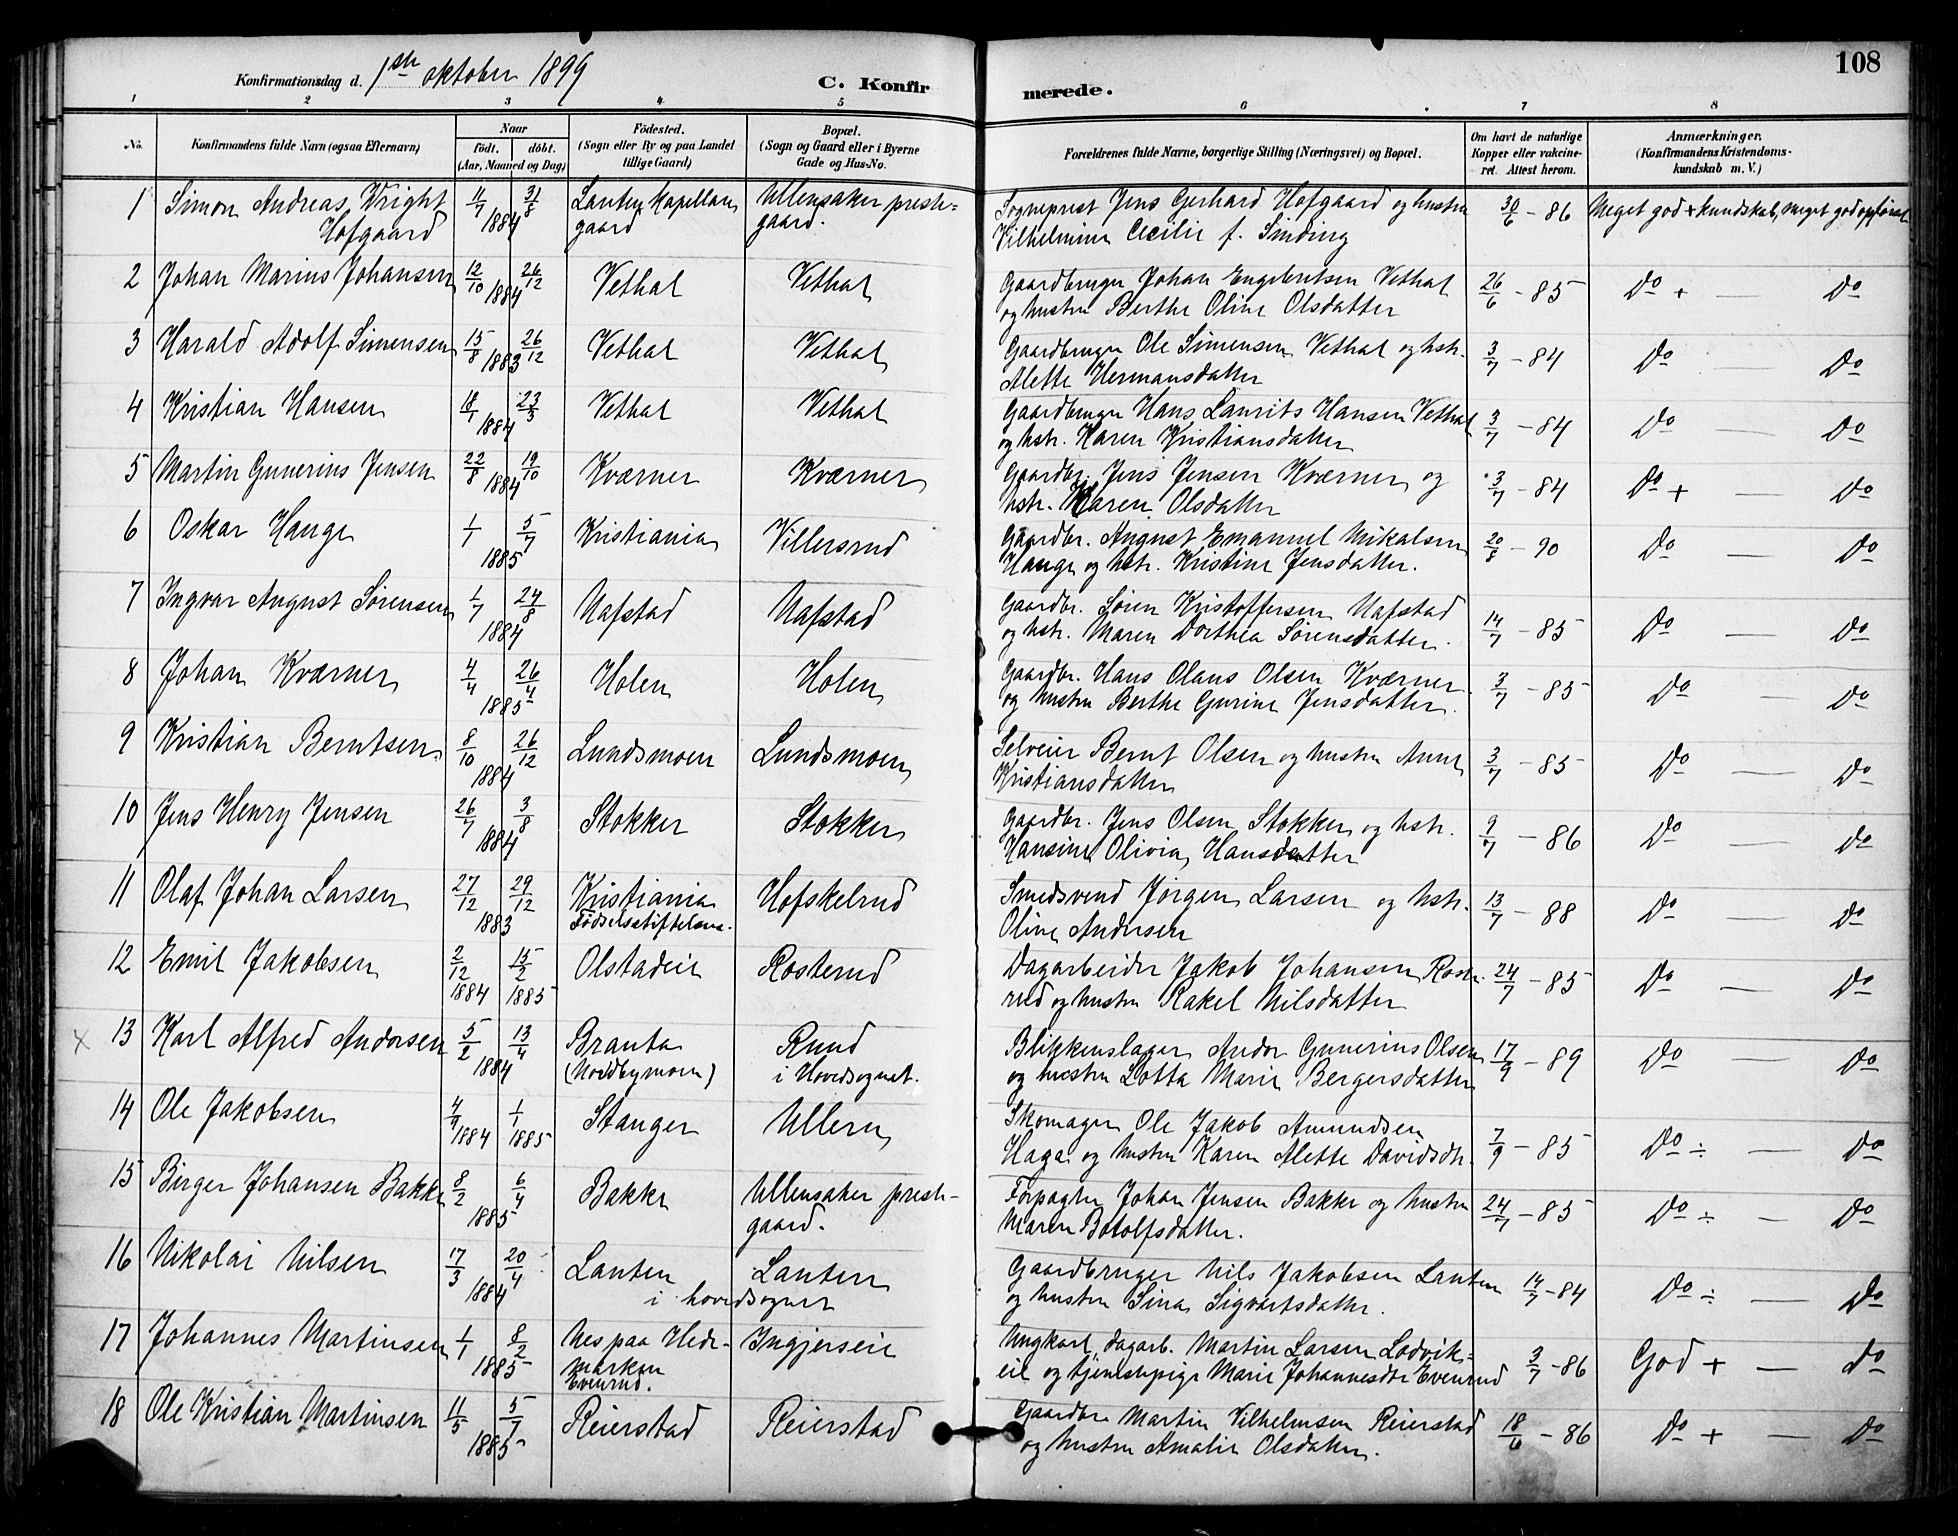 108
Konfirmationsdag d. 1ste oktober 1899
C. Konfirmerede.
1 2 3 4 5 6 7 8
No. Konfirmandens fulde Navn (ogsaa Efternavn) Naar født. døbt. (Aar, Maaned og Dag) Födested. (Sogn eller By og paa Landet tillige Gaard) Bopæl. (Sogn og Gaard eller i Byerne Gade og Hus-No. Forældrenes fulde Navne, borgerlige Stilling (Næringsvei) og Bopæl. Om havt de naturlige Kopper eller vakcineret. Attest herom. Anmærkninger. (Konfirmandens Kristendomskundskab m. V.)
1 Simon Andreas Wright 11/7 31/8 Lauten Kapellan Ullensaker preste= Sogneprest Jens Gerhard Hofgaard og hustru 30/6 - 86 Meget god + kundskab, meget god opførsel
Hofgaard 1884 gaard gaard. Vilhelmine Cecilie f. Sinding
2 Johan Marius Johansen 12/10 26/12 Vethal Vethal Gaardbruger Johan Engebretsen Vethal 26/6 - 85 Do + — Do
1884 og hustru Berthe Oline Olsdatter
3 Harald Adolf Simensen 15/8 26/12 Vethal Vethal Gaardbruger Ole Simensen Vethal og hstr. 3/7 - 84 Do — Do
1883 Alette Hermansdatter
4 Kristian Hansen 18/1 23/3 Vethal Vethal Gaardbruger Hans Laurits Hansen Vethal 3/7 - 84 Do — Do
1884 og hstr. Karen Kristiansdatter
5 Martin Gunerius Jensen 22/8 19/10 Kværner Kværner Gaardbr. Jens Jensen Kværner og 3/7 - 84 Do + — Do
1884 hstr. Karen Olsdatter
6 Oskar Hauge 1/1 5/7 Kristiania Villersrud Gaardbr. August Emanuel Mikalsen 20/8 - 90 Do — Do
1885 Hauge og hstr. Kristine Jensdatter.
7 Ingvar August Sørensen 1/7 24/8 Nafstad Nafstad Gaardbr. Søren Kristoffersen Nafstad 14/7 - 85 Do — Do
1884 og hstr. Maren Dorthea Sørensdatter.
8 Johan Kværner 4/4 26/4 Holen Holen Gaardbr. Hans Olaus Olsen Kværner 3/7 - 85 Do — Do
1885 og hustru Berthe Gurine Jensdatter.
9 Kristian Berntsen 8/10 26/12 Lundsmoen Lundsmoen Selveier Bernt Olsen og hustru Anne 3/7 - 85 Do — Do
1884 Kristiansdatter
10 Jens Henry Jensen 26/7 3/8 Stokker Stokker Gaardbr. Jens Olsen Stokker og hstr. 9/7 - 86 Do — Do
1884 Hansine Olivia Hansdatter
11 Olaf Johan Larsen 27/12 29/12 Kristiania Hofskelrud Smedsvend Jørgen Larsen og hstr. 13/7 - 88 Do — Do
1883 Fødselsstiftelsen. Oline Andersen
12 Emil Jakobsen 2/12 15/2 Olstadeie Rosterud Dagarbeider Jakob Johansen Roste- 24/7 - 85 Do — Do
1884 1885 rud og hustru Rakel Nilsdatter
× 13 Karl Alfred Andorsen 5/2 13/4 Branta Rund Blikkenslager Andor Gunerius Olsen 17/9 - 89 Do — Do
1884 (Noddbymoen) i Hovedsognet. og hustru Lotta Marie Bergersdatter
14 Ole Jakobsen 4/9 1/1 Stanger Ullern Skomager Ole Jakob Amundsen 7/9 - 85 Do ÷ — Do
1884 1885 Haga og hustru Karen Alette Davidsdtr.
15 Birger Johansen Bakke 8/2 6/4 Bakke Ullensaker prest- Forpagter Johan Jensen Bakke og hustru 24/7 - 85 Do ÷ — Do
1885 gaard. Maren Botolfsdatter.
16 Nikolai Nilsen 17/3 20/4 Lauten Lauten Gaardbruger Nils Jakobsen Lauten 14/7 - 84 Do ÷ — Do
1884 i hovedsognet og hustru Sina Sigvartsdatter.
17 Johannes Martinsen 1/1 8/2 Nes paa Hede- Ingjerseie Ungkarl, dagarb. Martin Larsen Lodvik= 3/7 - 86 God + — Do
1885 marken Evenrud. eie og tjenestepige Marie Johannesdtr Evenrud
18 Ole Kristian Martinsen 11/5 5/7 Reierstad Reierstad Gaardbr. Martin Vilhelmsen Reierstad 18/6 - 86 Do + — Do
1885 og hustru Amalie Olsdatter.